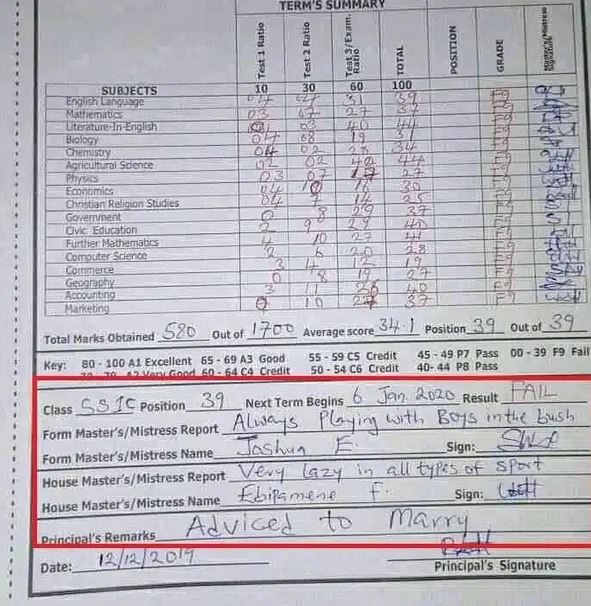 TERM'S SUMMARY
SUBJECTS Test 1 Ratio Test 2 Ratio Test 3/Exam. Ratio TOTAL POSITION GRADE Signature
10 30 60 100
English Language 04 04 31 39 F9
Mathematics 03 07 27 37 F9
Literature-In-English 03 40 44 F9
Biology 04 08 19 31 F9
Chemistry 04 02 28 34 F9
Agricultural Science 02 02 40 44 F9
Physics 03 07 17 27 F9
Economics 04 10 16 30 F9
Christian Religion Studies 04 7 14 25 F9
Government 0 8 29 37 F9
Civic Education 2 9 29 40 F9
Further Mathematics 4 10 27 41 F9
Computer Science 2 6 20 28 F9
Commerce 3 4 12 19 F9
Geography 0 8 19 27 F9
Accounting 3 11 26 40 F9
Marketing 0 10 27 37 F9
Total Marks Obtained 580 Out of 1700 Average score 34.1 Position 39 Out of 39
Key: 80 - 100 A1 Excellent 65 - 69 A3 Good 55 - 59 C5 Credit 45 - 49 P7 Pass 00 - 39 F9 Fail
70 - 79 A2 Very Good 60 - 64 C4 Credit 50 - 54 C6 Credit 40- 44 P8 Pass
Class SS1C Position 39 Next Term Begins 6 Jan. 2020 Result FAIL
Form Master's/Mistress Report Always Playing with Boys in the bush
Form Master's/Mistress Name Joshua E. Sign:
House Master's/Mistress Report Very lazy in all types of sport
House Master's/Mistress Name Ebipamene F. Sign:
Principal's Remarks Adviced to Marry
Date: 12/12/2019 Principal's Signature